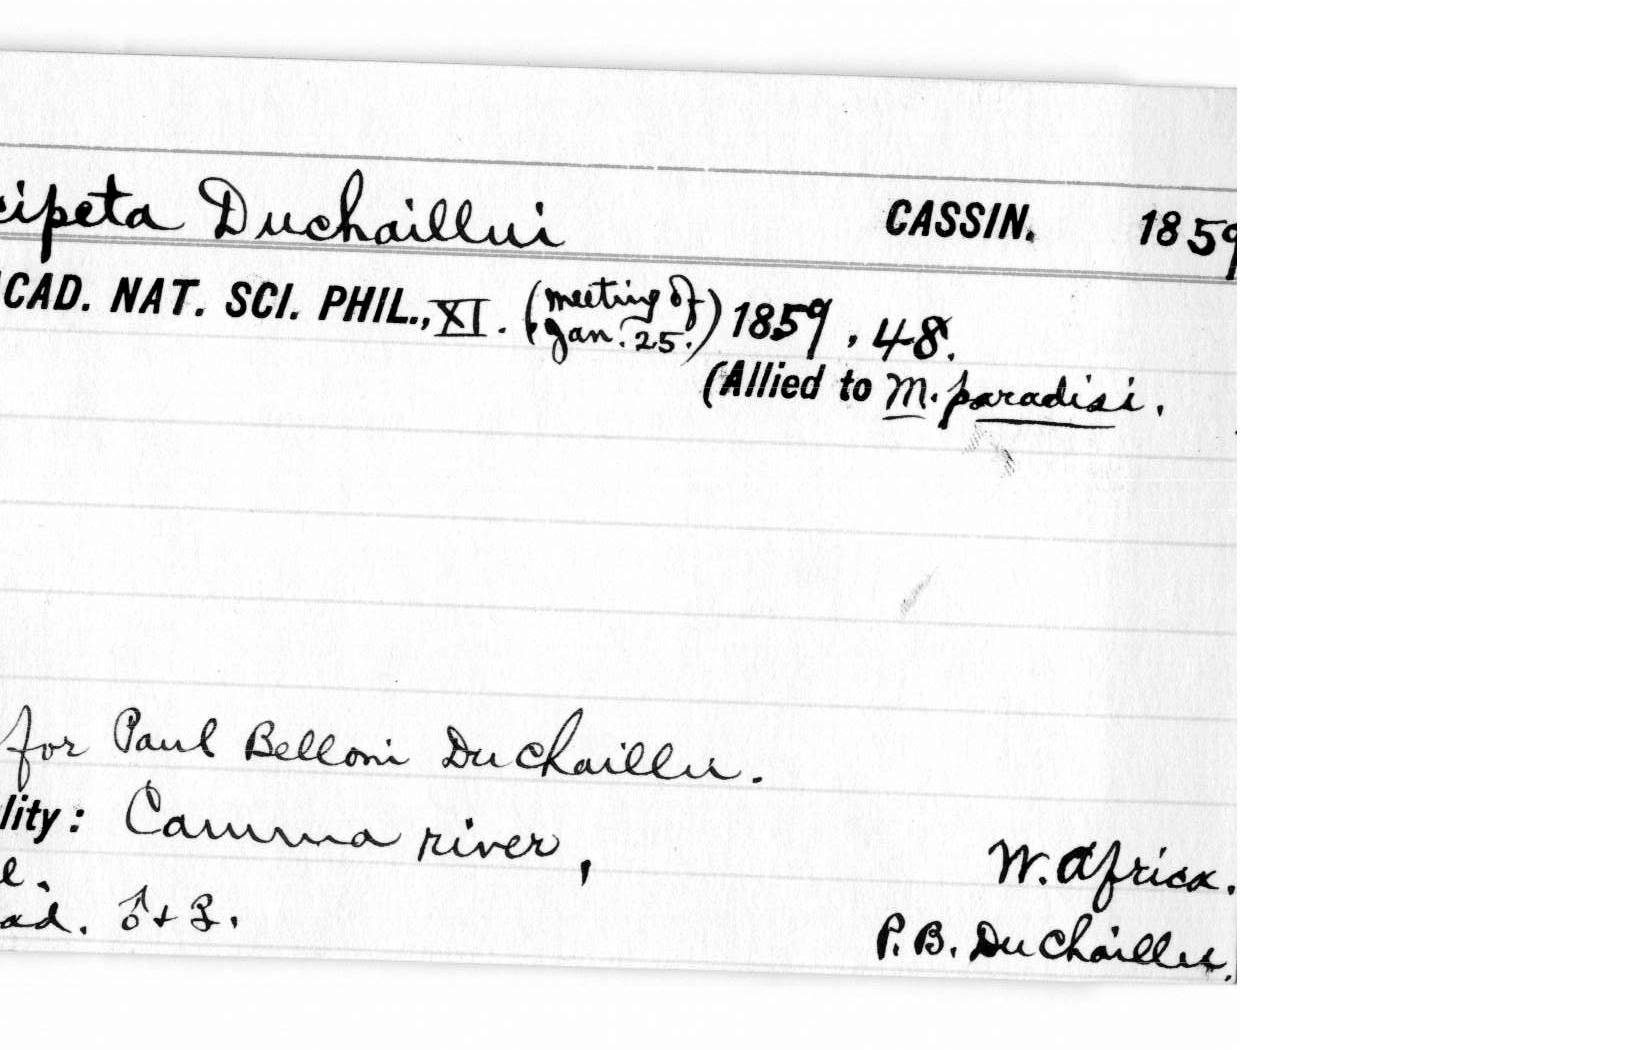 cipeta Duchaillui CASSIN. 1859
CAD. NAT. SCI. PHIL., XI. (meeting of Jan. 25.) 1859, 48.
(Allied to M. paradisi.
for Paul Belloni Duchaillu.
lity: Camma river, W. Africa.
e.
ad. ♂ + ♀. P. B. Duchaillu.